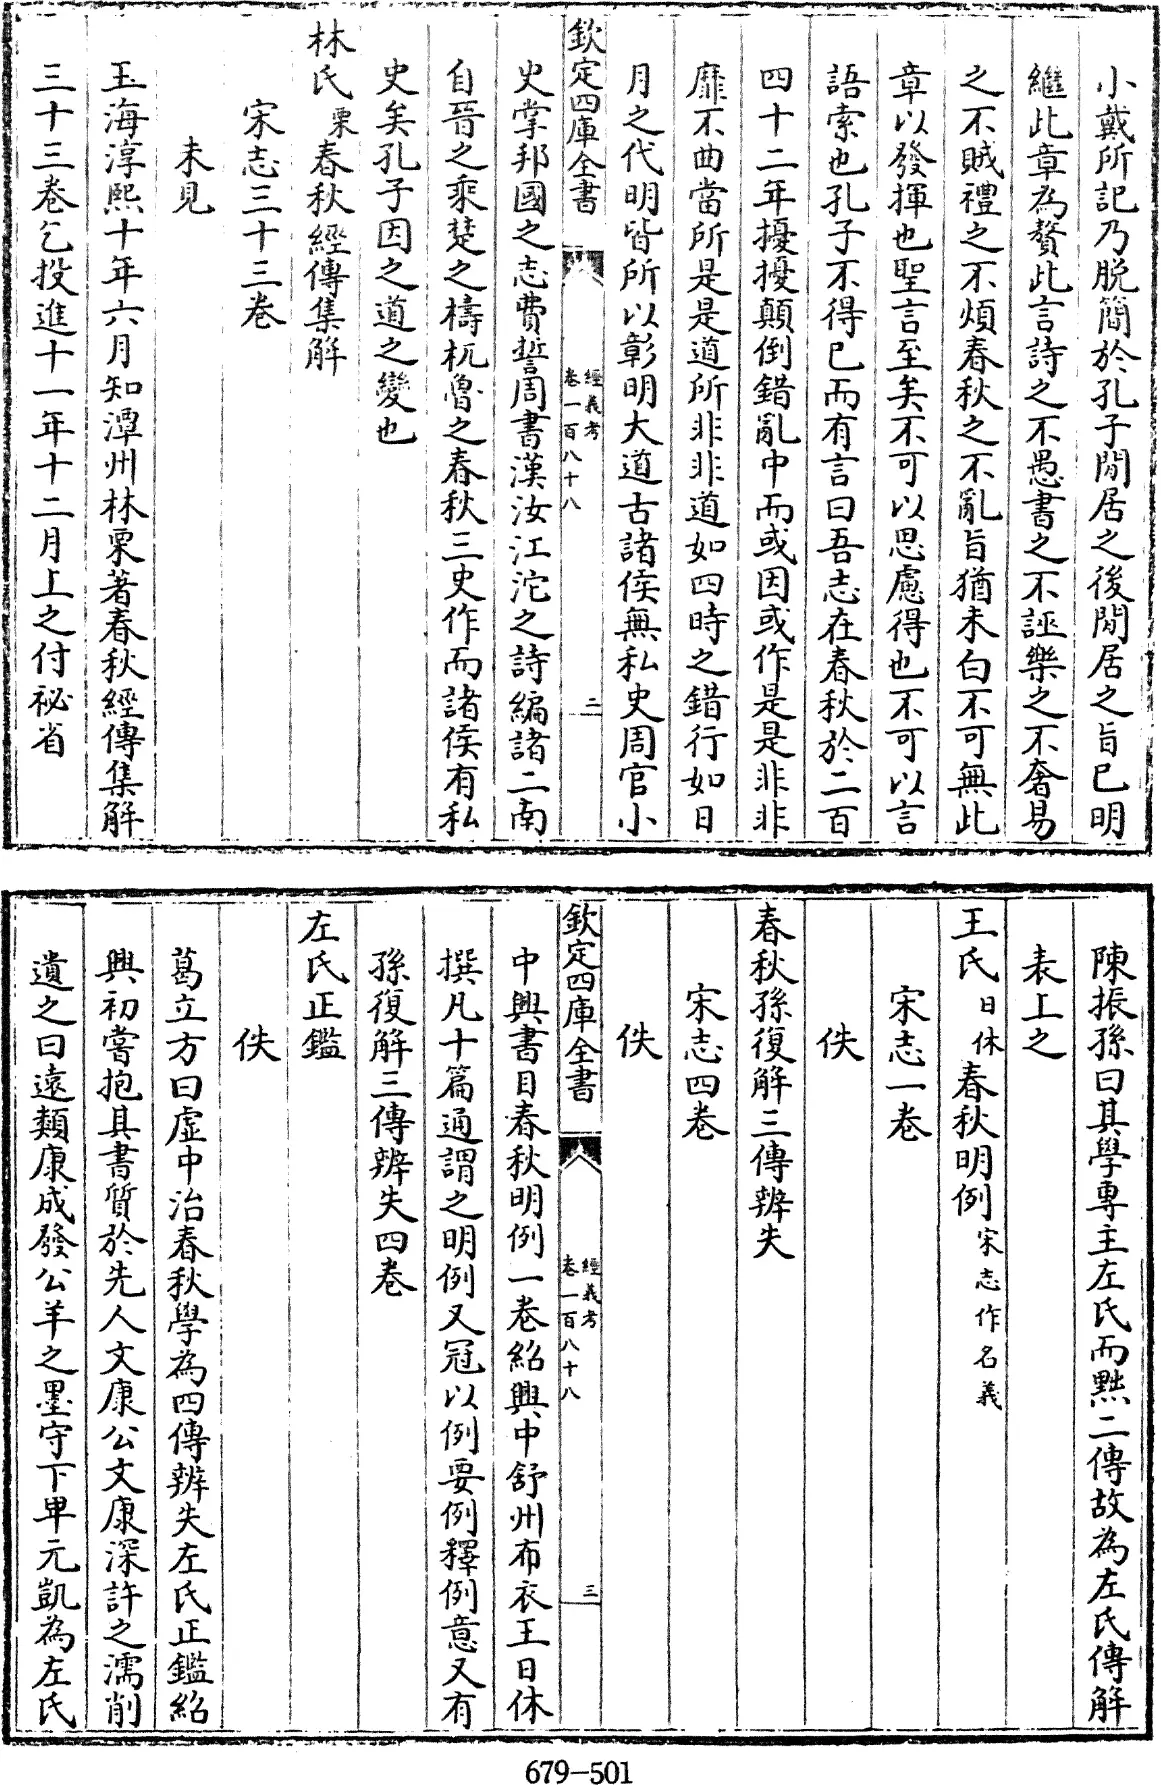 小戴所記乃脱簡於孔子閒居之後閒居之旨已明
繼此章為贅此言詩之不愚書之不誣樂之不奢易
之不賊禮之不煩春秋之不亂旨猶未白不可無此
章以發揮也聖言至矣不可以思慮得也不可以言
語索也孔子不得已而有言曰吾志在春秋於二百
四十二年擾擾顛倒錯亂中而或因或作是是非非
靡不曲當所是是道所非非道如四時之錯行如日
月之代明皆所以彰明大道古諸侯無私史周官小
欽定四庫全書
經義考
卷一百八十八
二
史掌邦國之志費誓周書漢汝江沱之詩編諸二南
自晉之乘楚之檮杌魯之春秋三史作而諸侯有私
史矣孔子因之道之變也
林氏栗春秋經傳集解
宋志三十三卷
未見
玉海淳熙十年六月知潭州林栗著春秋經傳集解
三十三卷乞投進十一年十二月上之付祕省
陳振孫曰其學專主左氏而黜二傳故為左氏傳解
表上之
王氏日休春秋明例宋志作名義
宋志一卷
佚
春秋孫復解三傳辨失
宋志四卷
佚
欽定四庫全書
經義考
卷一百八十八
三
中興書目春秋明例一卷紹興中舒州布衣王日休
撰凡十篇通謂之明例又冠以例要例釋例意又有
孫復解三傳辨失四卷
左氏正鑑
佚
葛立方曰虛中治春秋學為四傳辨失左氏正鑑紹
興初嘗抱其書質於先人文康公文康深許之濡削
遺之曰遠類康成發公羊之墨守下卑元凱為左氏
679-501